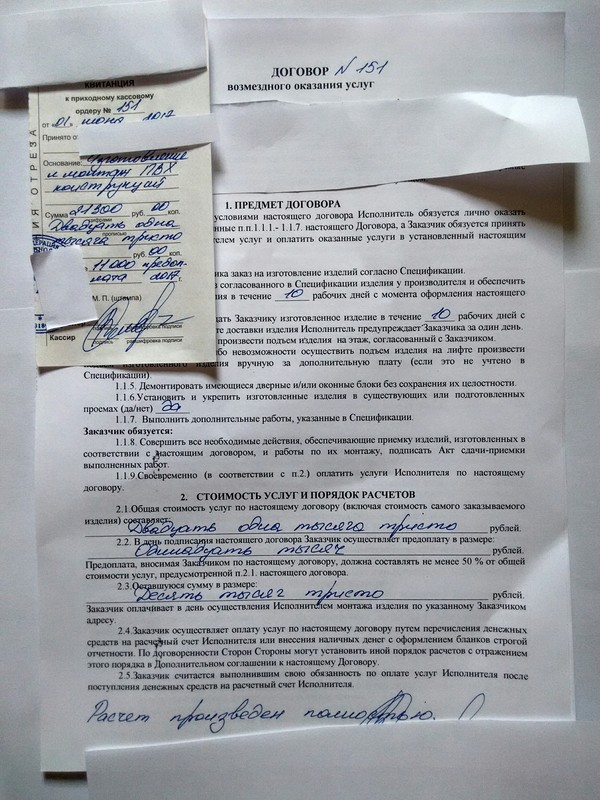 КВИТАНЦИЯ
к приходному кассовому
ордеру № 151
от «01» июня 2017
Принято от
Основание: Изготовление
и монтаж ПВХ
конструкций
Сумма 21300 руб. 00 коп.
цифрами
Двадцать одна
прописью
тысяча тристо
руб. 00 коп.
11000 предоп-
лата 2017 г.
М. П. (штампа)
подпись расшифровка подписи
Кассир
подпись расшифровка подписи
ИЯ ОТРЕЗА
ДОГОВОР N 151
возмездного оказания услуг
1. ПРЕДМЕТ ДОГОВОРА
условиями настоящего договора Исполнитель обязуется лично оказать
нные п.п.1.1.1.- 1.1.7. настоящего Договора, а Заказчик обязуется принять
телем услуг и оплатить оказанные услуги в установленный настоящим
ика заказ на изготовление изделий согласно Спецификации.
согласованного в Спецификации изделия у производителя и обеспечить
ния в течение 10 рабочих дней с момента оформления настоящего
дать Заказчику изготовленное изделие в течение 10 рабочих дней с
те доставки изделия Исполнитель предупреждает Заказчика за один день.
произвести подъем изделия на этаж, согласованный с Заказчиком.
ибо невозможности осуществить подъем изделия на лифте произвести
подъем изготовленного изделия вручную за дополнительную плату (если это не учтено в
Спецификации).
1.1.5. Демонтировать имеющиеся дверные и/или оконные блоки без сохранения их целостности.
1.1.6.Установить и укрепить изготовленные изделия в существующих или подготовленных
проемах (да/нет) да
1.1.7. Выполнить дополнительные работы, указанные в Спецификации.
Заказчик обязуется:
1.1.8. Совершить все необходимые действия, обеспечивающие приемку изделий, изготовленных в
соответствии с настоящим договором, и работы по их монтажу, подписать Акт сдачи-приемки
выполненных работ.
1.1.9.Своевременно (в соответствии с п.2.) оплатить услуги Исполнителя по настоящему
договору.
2. СТОИМОСТЬ УСЛУГ И ПОРЯДОК РАСЧЕТОВ
2.1.Общая стоимость услуг по настоящему договору (включая стоимость самого заказываемого
изделия) составляет
Двадцать одна тысяча тристо рублей.
2.2. В день подписания настоящего договора Заказчик осуществляет предоплату в размере:
Одиннадцать тысяч рублей.
Предоплата, вносимая Заказчиком по настоящему договору, должна составлять не менее 50 % от общей
стоимости услуг, предусмотренной п.2.1. настоящего договора.
2.3.Оставшуюся сумму в размере:
Десять тысяч тристо рублей.
Заказчик оплачивает в день осуществления Исполнителем монтажа изделия по указанному Заказчиком
адресу.
2.4.Заказчик осуществляет оплату услуг по настоящему договору путем перечисления денежных
средств на расчетный счет Исполнителя или внесения наличных денег с оформлением бланков строгой
отчетности. По договоренности Сторон Стороны могут установить иной порядок расчетов с отражением
этого порядка в Дополнительном соглашении к настоящему Договору.
2.5.Заказчик считается выполнившим свою обязанность по оплате услуг Исполнителя после
поступления денежных средств на расчетный счет Исполнителя.
Расчет произведен полностью.